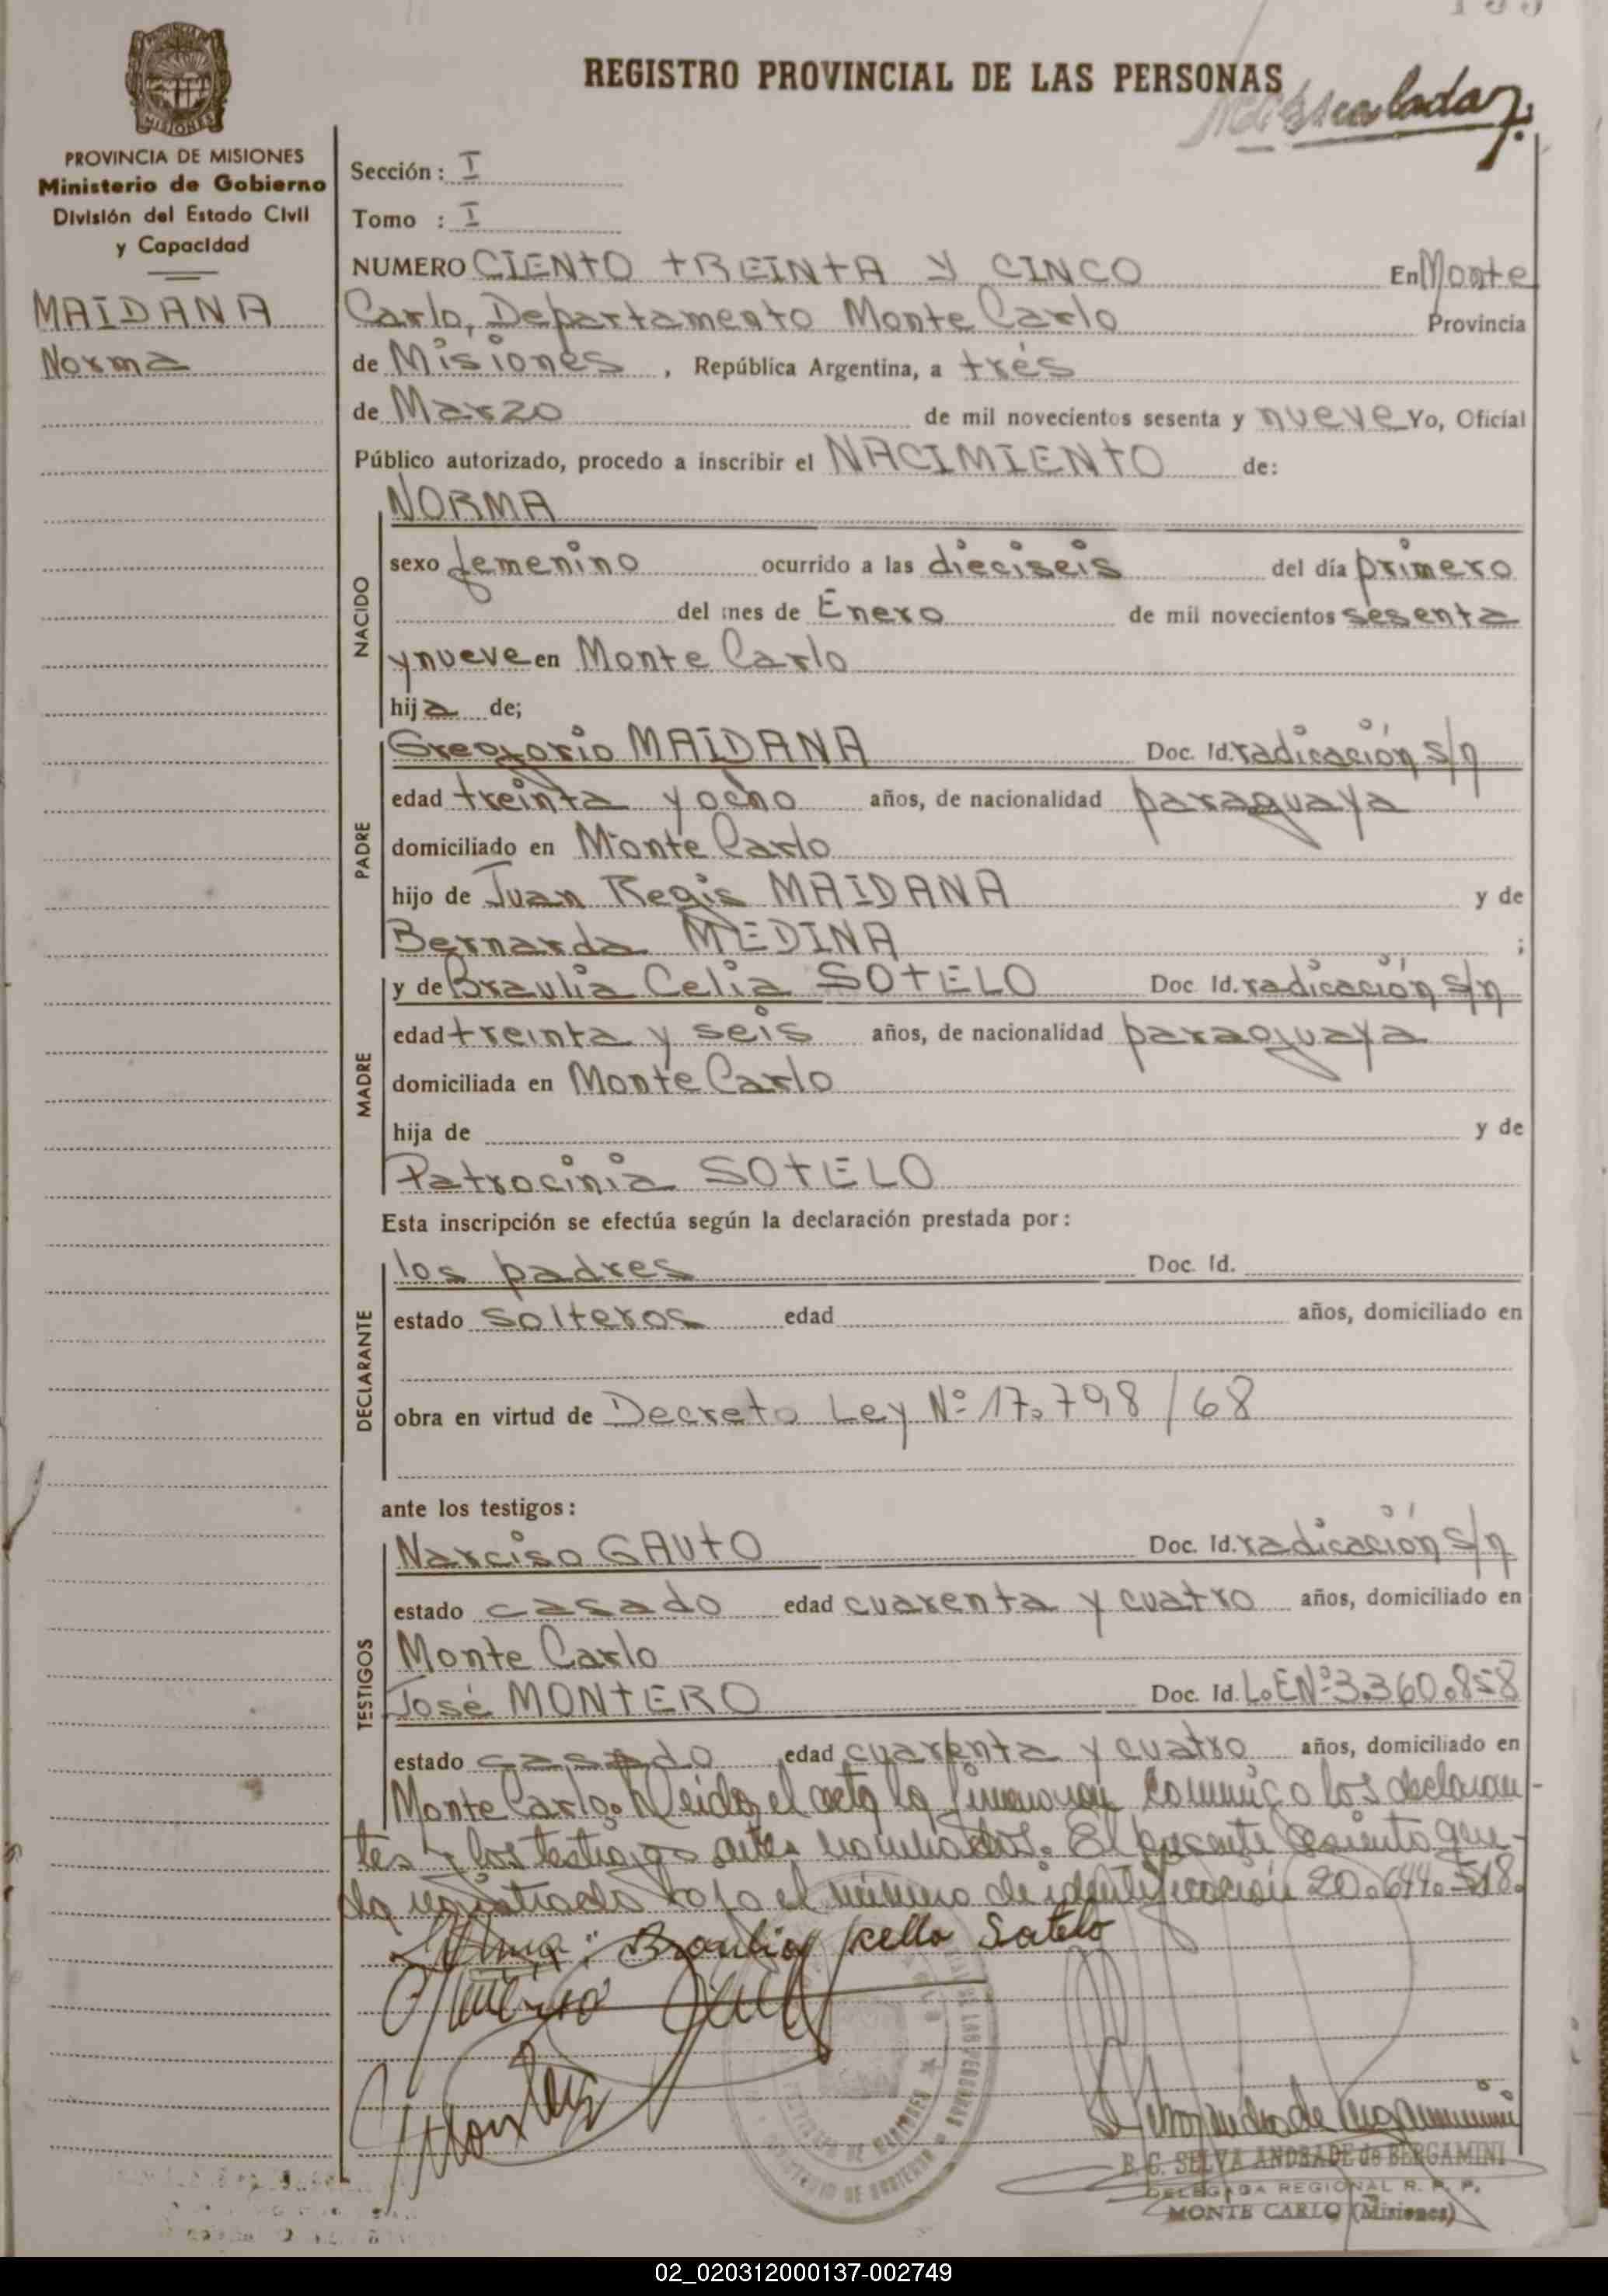 REGISTRO PROVINCIAL DE LAS PERSONAS
MISIONES
PROVINCIA DE MISIONES
Ministerio de Gobierno
División del Estado Civil
y Capacidad
MAIDANA
Norma
Sección: I
Tomo : I
NUMERO CIENTO TREINTA Y CINCO En Monte
Carlo, Departamento Monte Carlo Provincia
de Misiones, República Argentina, a tres
de Marzo de mil novecientos sesenta y nueve Yo, Oficial
Público autorizado, procedo a inscribir el NACIMIENTO de:
NACIDO
NORMA
sexo femenino ocurrido a las dieciseis del día primero
del mes de Enero de mil novecientos sesenta
y nueve en Monte Carlo
hija de;
PADRE
Gregorio MAIDANA Doc. Id. radicación s/n
edad treinta y ocho años, de nacionalidad paraguaya
domiciliado en Monte Carlo
hijo de Juan Regis MAIDANA y de
Bernarda MEDINA ;
MADRE
y de Braulia Celia SOTELO Doc Id. radicación s/n
edad treinta y seis años, de nacionalidad paraguaya
domiciliada en Monte Carlo
hija de y de
Patrocinia SOTELO
Esta inscripción se efectúa según la declaración prestada por:
DECLARANTE
los padres Doc. Id.
estado solteros edad años, domiciliado en
obra en virtud de Decreto Ley Nº 17.798/68
ante los testigos:
TESTIGOS
Narciso GAUTO Doc. Id. radicación s/n
estado casado edad cuarenta y cuatro años, domiciliado en
Monte Carlo
José MONTERO Doc. Id. L.E Nº 3.360.858
estado casado edad cuarenta y cuatro años, domiciliado en
Monte Carlo. Leida el acta la firman conmigo los declaran-
tes y los testigos antes nombrados. El presente asiento que-
da registrado bajo el número de identificación 20.644.518.
Braulia Sotelo
B. C. SELVA ANDRADE de BERGAMINI
DELEGADA REGIONAL R. P. P.
MONTE CARLO (Misiones)
02_020312000137-002749